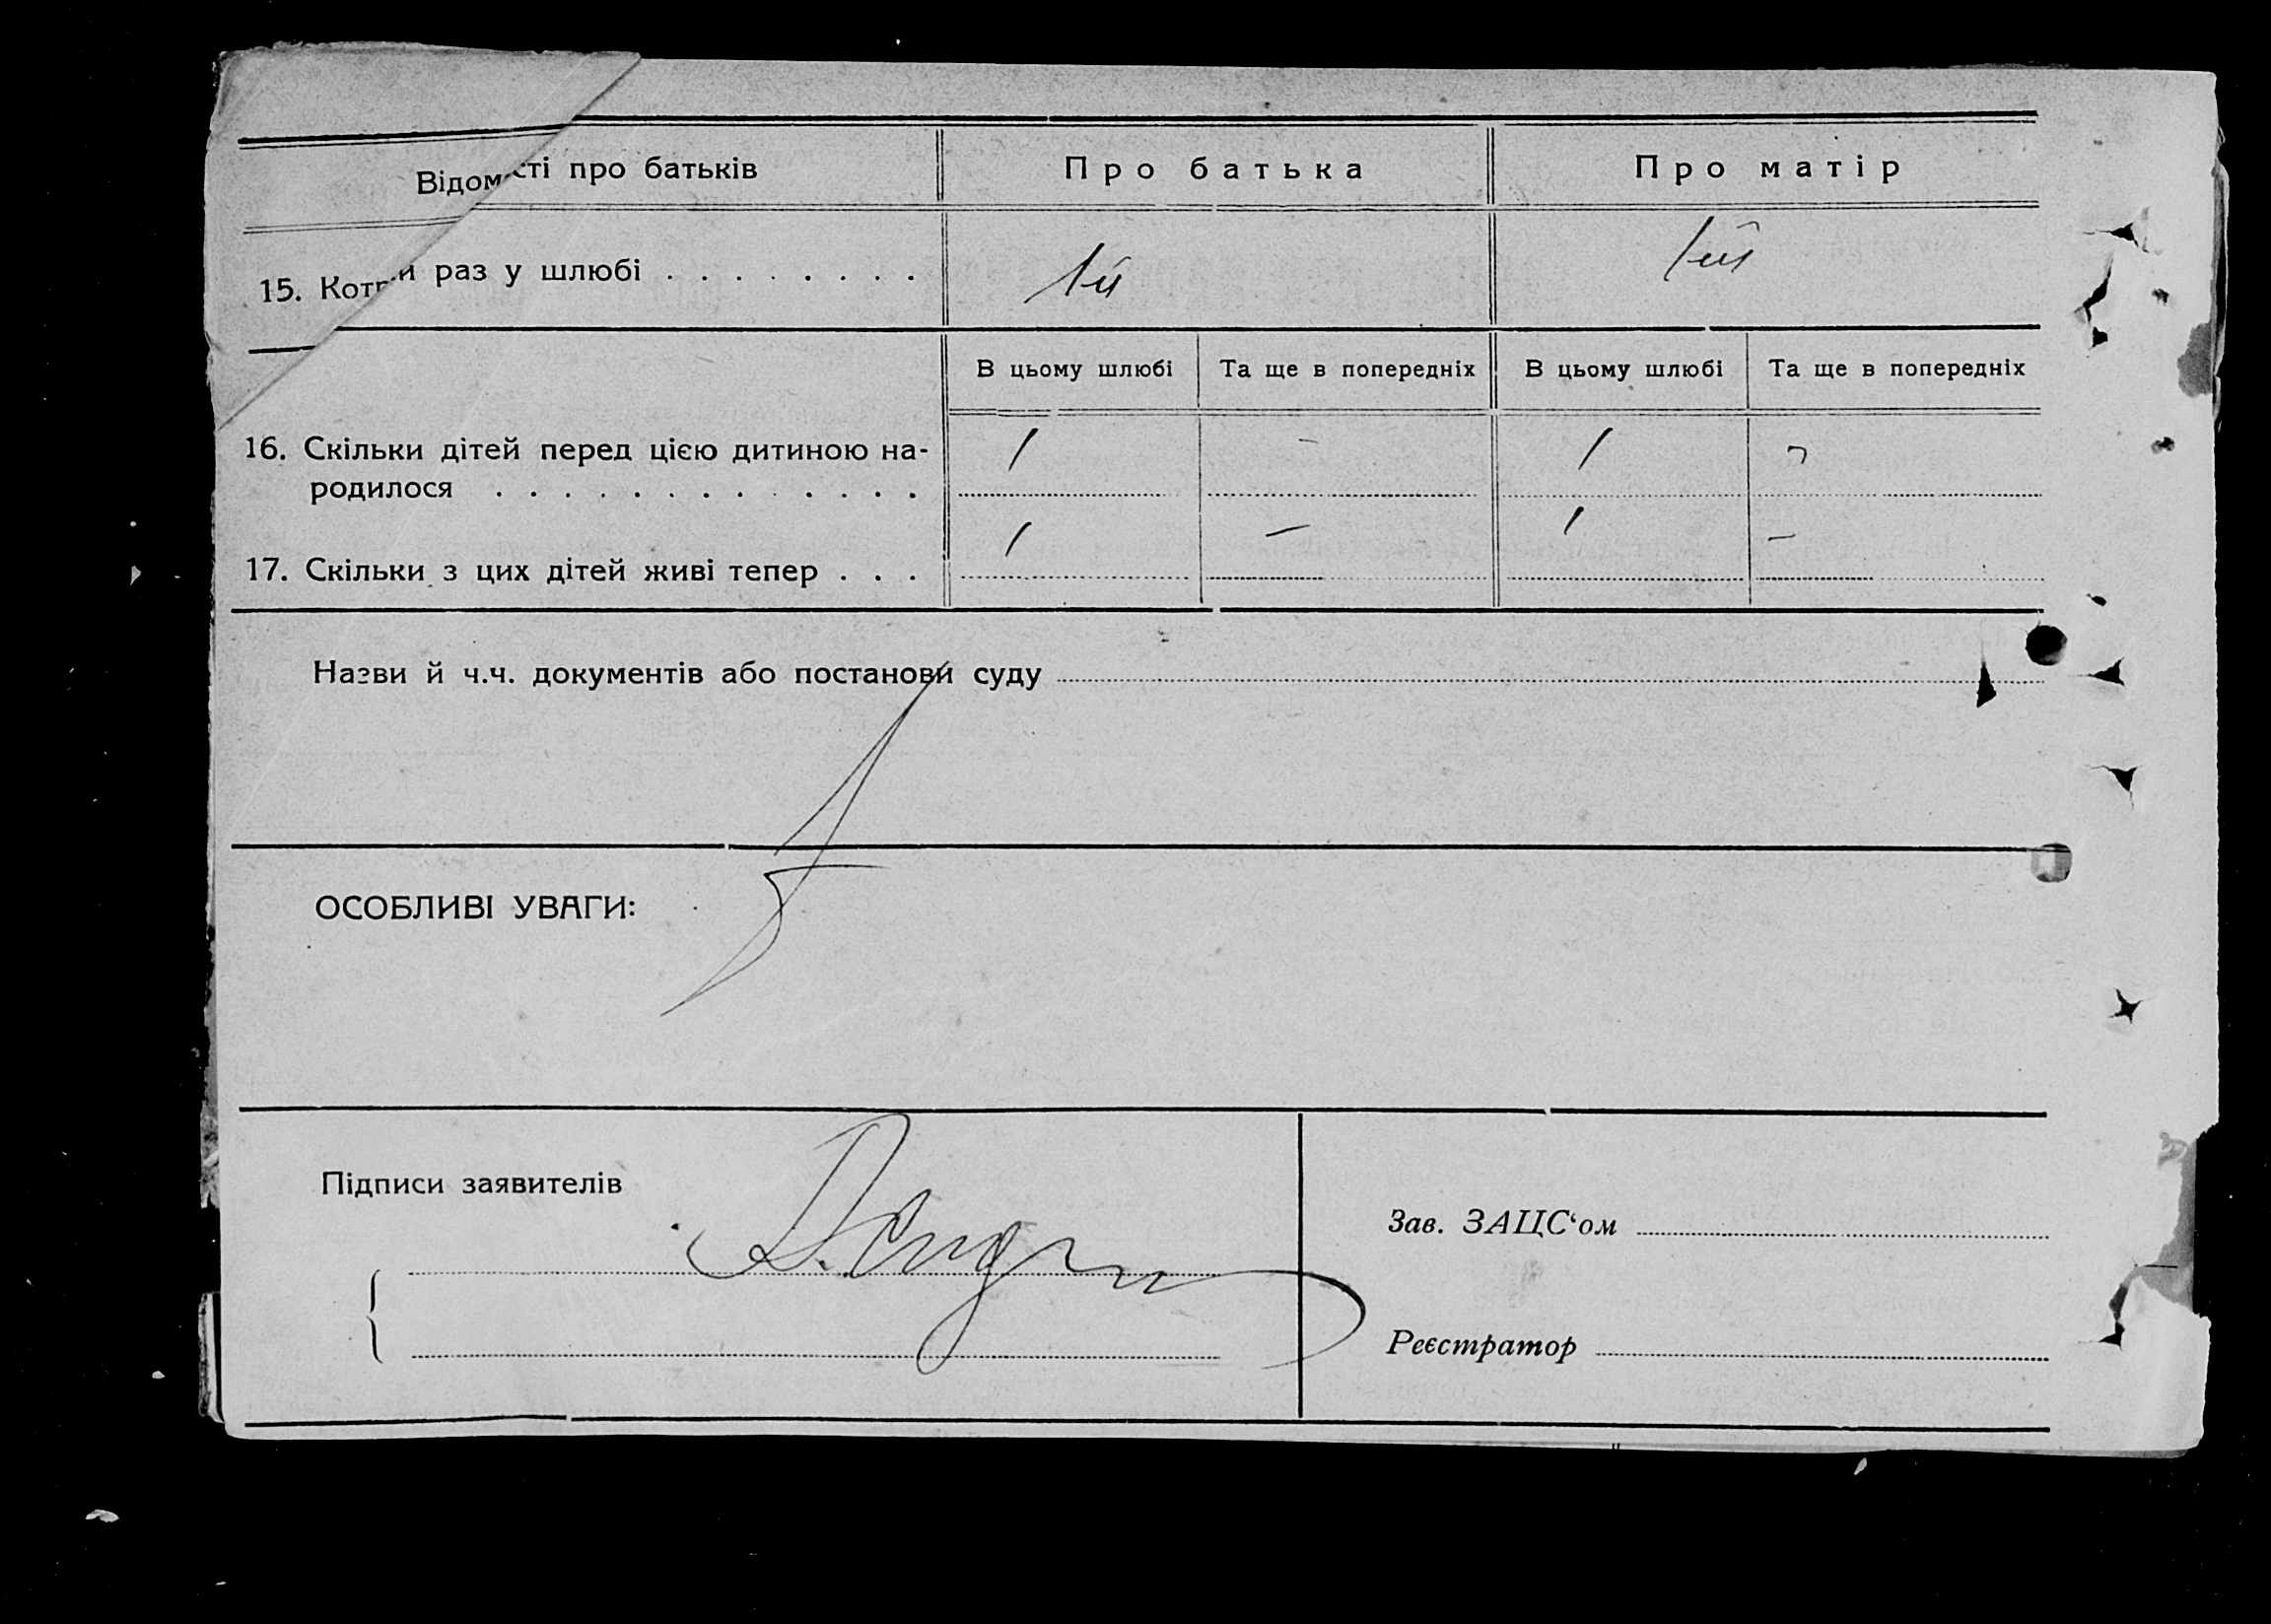 Відомості про батьків Про батька Про матір
15. Котрий раз у шлюбі . . . . . . . . 1й 1ий
В цьому шлюбі Та ще в попередніх В цьому шлюбі Та ще в попередніх
16. Скільки дітей перед цією дитиною на- 1 - 1 -
родилося . . . . . . . . . . . . .
17. Скільки з цих дітей живі тепер . . . 1 - 1 -
Назви й ч.ч. документів або постанови суду
ОСОБЛИВІ УВАГИ:
Підписи заявителів
Зав. ЗАЦС‘ом
Реєстратор